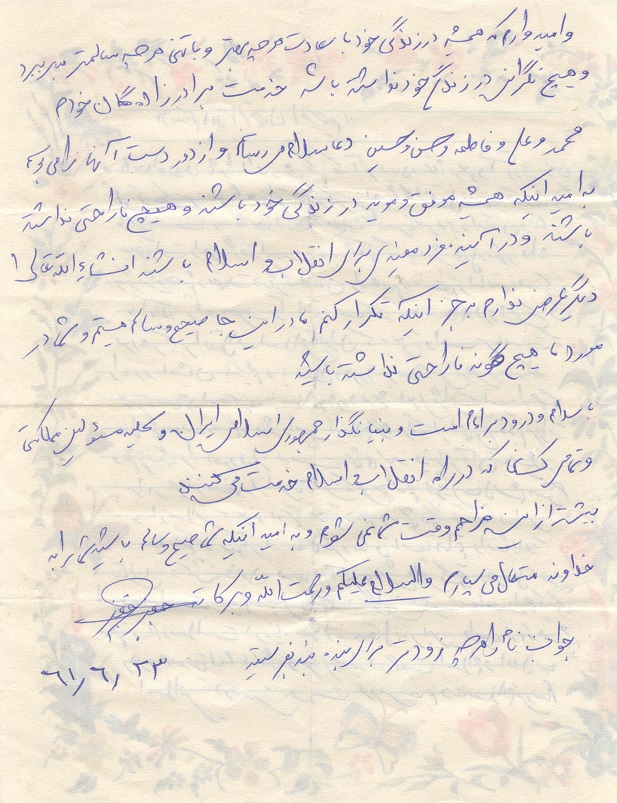 و امیدوارم که همیشه در زندگی خود با سعادت هر چه بهتر و با تنی هر چه سالمتر بسر ببرید
و هیچ نگرانی در زندگی خود نداشته باشید خدمت برادرزاده گان خودم
محمد و علی و فاطمه و حسن و حسین دعا سلام می رسانم و از دور دست آنها را می بوسم
به امید اینکه همیشه موفق و موید در زندگی خود باشند و هیچ ناراحتی نداشته
باشند و در آینده فرد مفیدی برای انقلاب و اسلام باشند انشاءالله تعالی
دیگر عرضی ندارم به جز اینکه تکرار کنم ما در این جا صحیح و سالم هستیم و شما در
مورد ما هیچ گونه ناراحتی نداشته باشید
با سلام و درود بر امام امت و بنیانگذار جمهوری اسلامی ایران و کلیه مسئولین مملکتی
و تمامی کسانی که در راه انقلاب و اسلام خدمت می کنند
بیشتر از این مزاحم وقت شما نمی شوم و به امید اینکه شما صحیح و سالم باشید شما را به
خداوند متعال می سپارم والسلام علیکم و رحمت الله و برکاته
جواب نامه را هر چه زودتر برای بنده بفرستید
۶۱/۶/۲۳